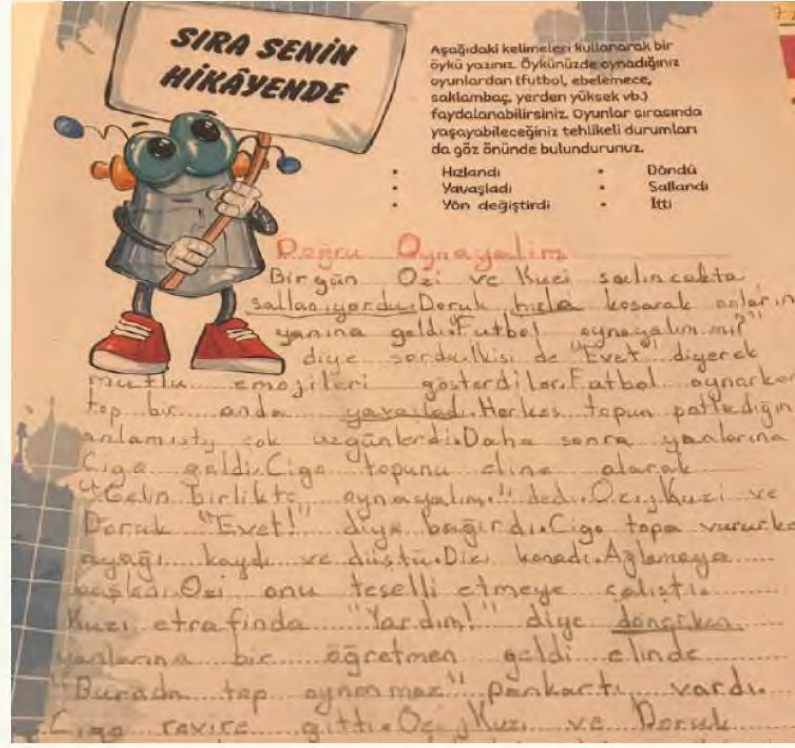 SIRA SENİN
HİKÂYENDE
Aşağıdaki kelimeleri kullanarak bir
öykü yazınız. Öykünüzde oynadığınız
oyunlardan (futbol, ebelemece,
saklambaç, yerden yüksek vb.)
faydalanabilirsiniz. Oyunlar sırasında
yaşayabileceğiniz tehlikeli durumları
da göz önünde bulundurunuz.
• Hızlandı
• Yavaşladı
• Yön değiştirdi
• Döndü
• Sallandı
• İtti
Doğru Oynayalım
Bir gün Ozi ve Kuzi salıncakta
sallanıyordu. Doruk hızla koşarak onların
yanına geldi. "Futbol oynayalım mı?"
diye sordu. İkisi de "Evet" diyerek
mutlu emojileri gösterdiler. Futbol oynarken
top bir anda yavaşladı. Herkes topun patladığın
anlamıştı çok üzgünlerdi. Daha sonra yanlarına
Cigo geldi. Cigo topunu eline alarak
"Gelin birlikte oynayalım." dedi. Ozi, Kuzi ve
Doruk "Evet!" diye bağırdı. Cigo topa vururke
ayağı kaydı ve düştü. Dizi kanadı. Ağlamaya
başladı. Ozi onu teselli etmeye çalıştı.
Kuzi etrafında "Yardım!" diye dönerken
yanlarına bir öğretmen geldi elinde
"Burada top oynanmaz" pankartı vardı.
Cigo revire gitti. Ozi, Kuzi ve Doruk